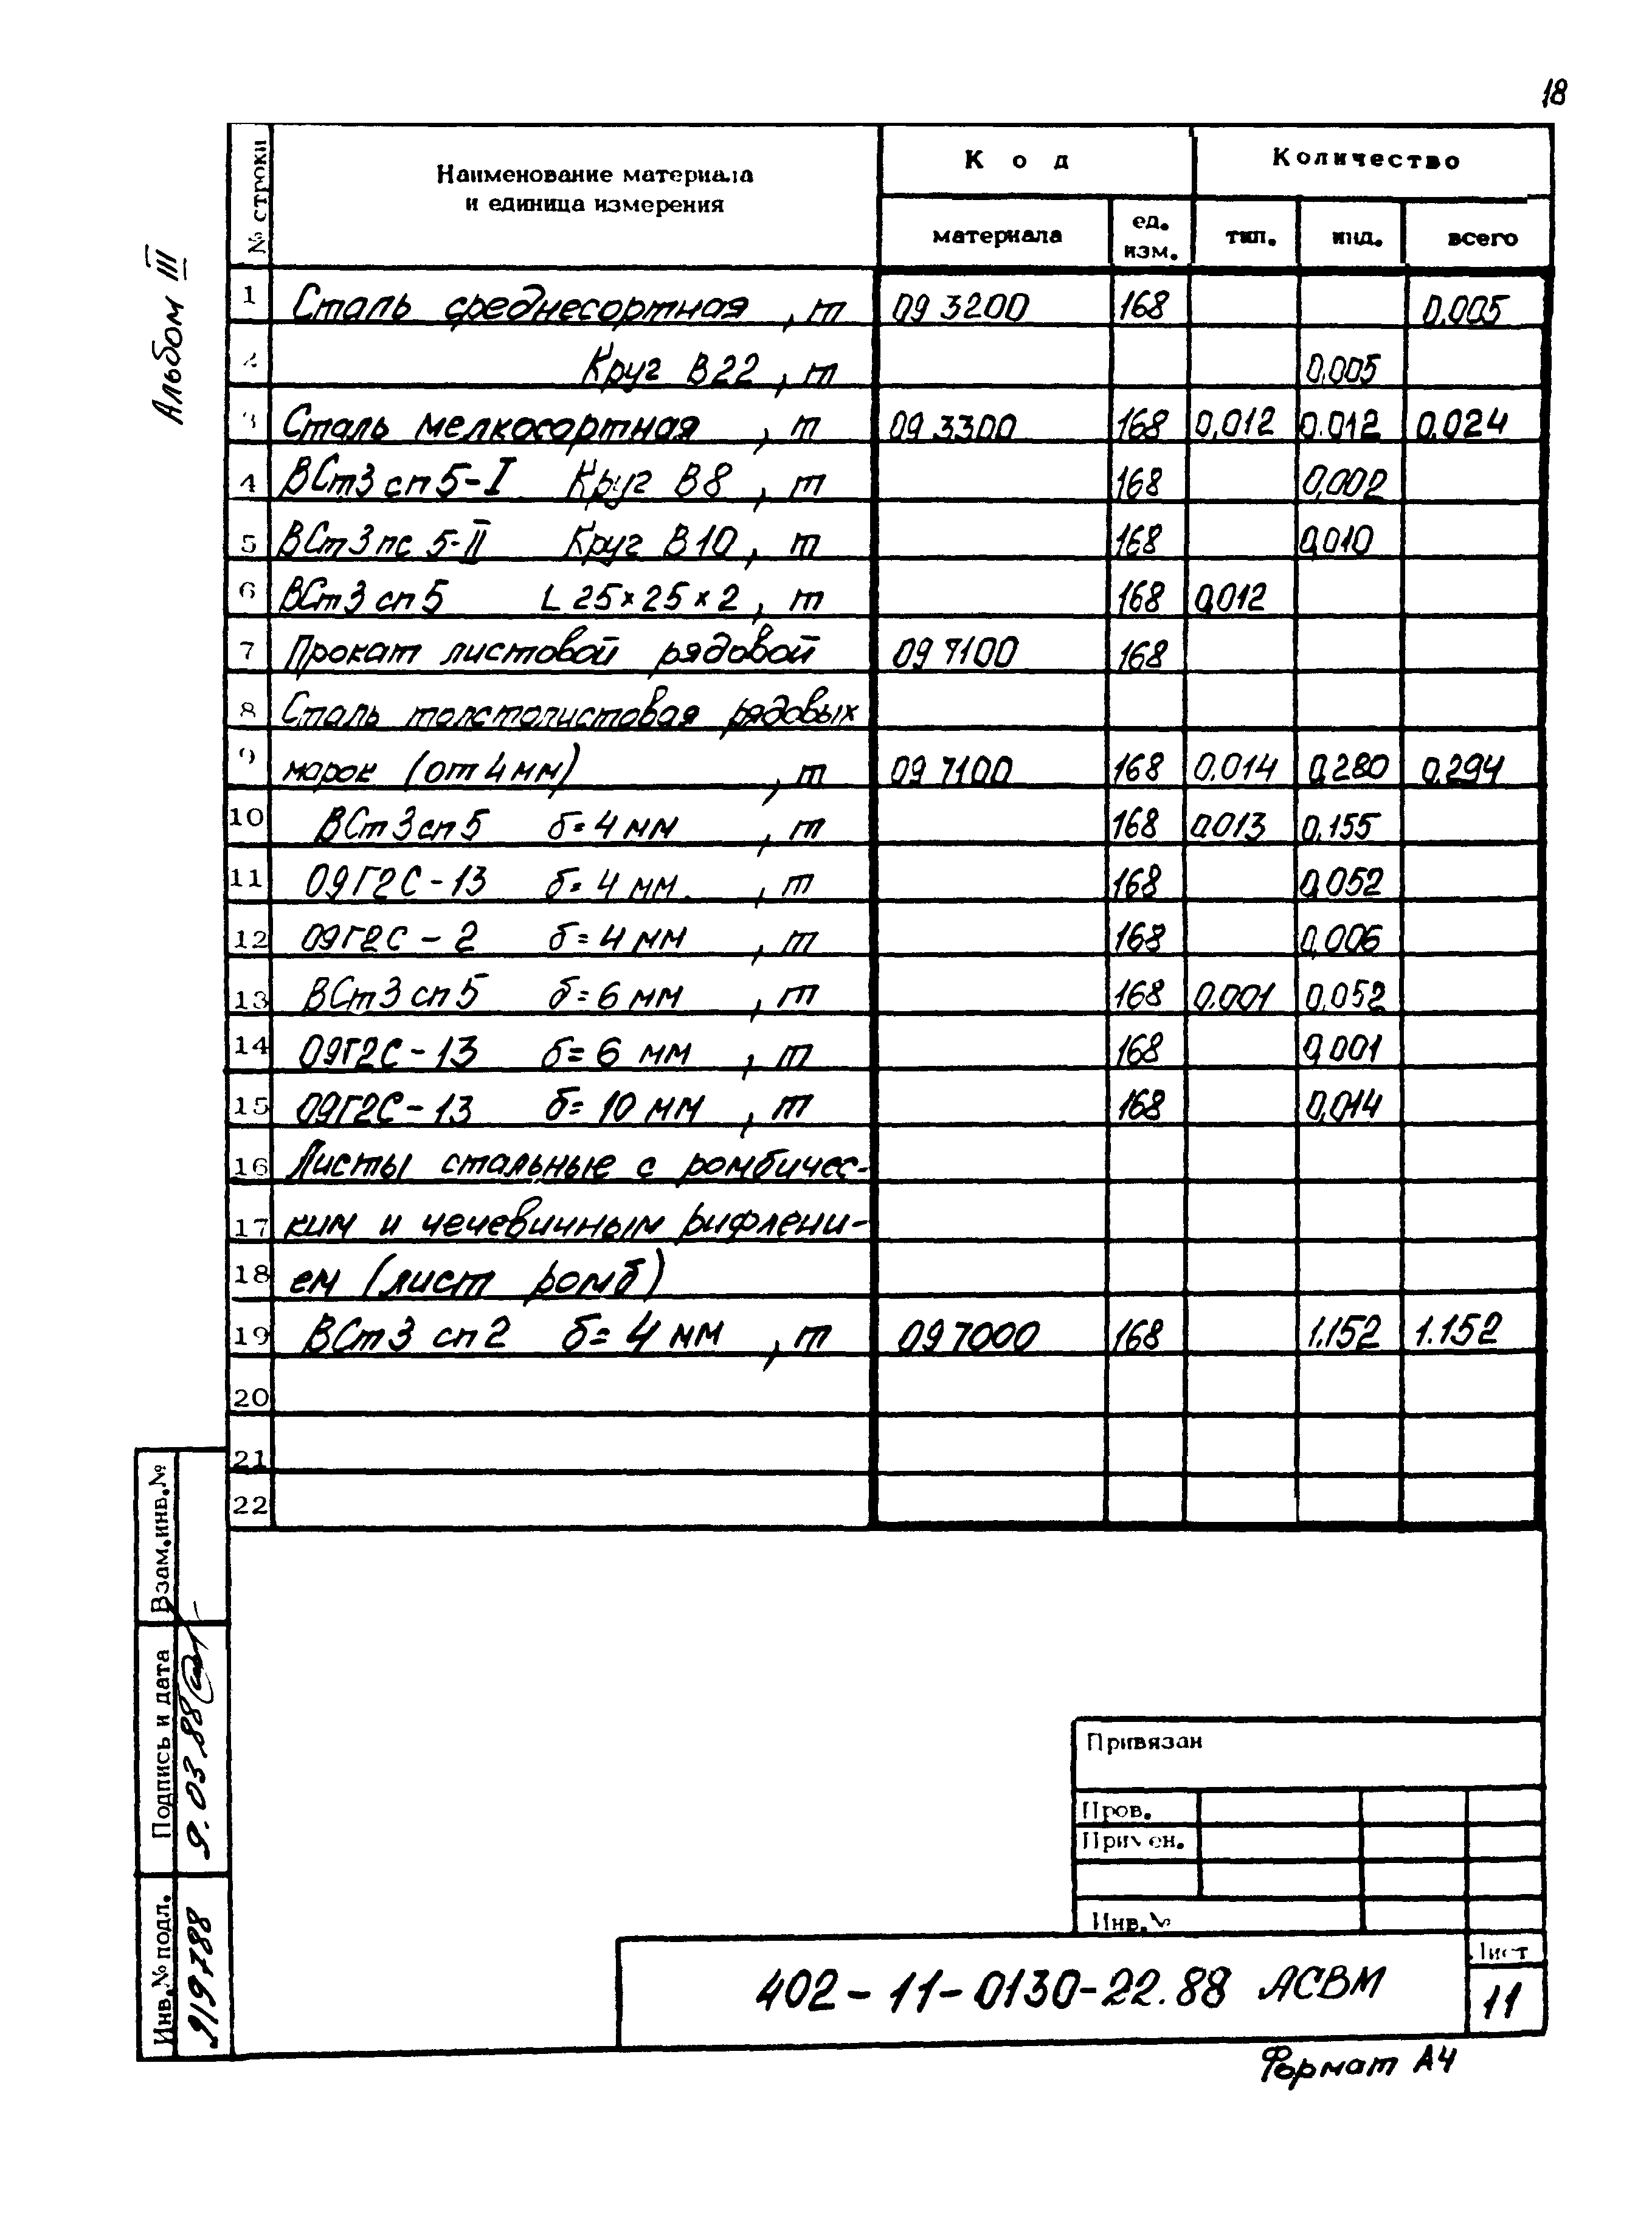 18
Альбом III
№ строки
Наименование материала и единица измерения
Код
Количество
материала
ед. изм.
тип.
инд.
всего
1 Сталь среднесортная , т 09 3200 168 0.005
2 Круг В22 , т 0,005
3 Сталь мелкосортная , т 09 3300 168 0,012 0.012 0.024
4 ВСт3 сп 5-I Круг В8 , т 168 0,002
5 ВСт3 пс 5-II Круг В10 , т 168 0,010
6 ВСт3 сп 5 L 25×25×2 , т 168 0,012
7 Прокат листовой рядовой 09 7100 168
8 Сталь толстолистовая рядовых
9 марок (от 4 мм) , т 09 7100 168 0.014 0,280 0.294
10 ВСт3 сп 5 б=4 мм , т 168 0,013 0,155
11 09Г2С-13 б=4 мм. , т 168 0,052
12 09Г2С-2 б=4 мм , т 168 0,006
13 ВСт3 сп 5 б=6 мм , т 168 0.001 0,052
14 09Г2С-13 б=6 мм , т 168 0,001
15 09Г2С-13 б=10 мм , т 168 0,014
16 Листы стальные с ромбичес-
17 ким и чечевичным рифлени-
18 ем (лист ромб)
19 ВСт3 сп 2 б=4 мм , т 09 7000 168 1.152 1.152
20
21
22
Взам.инв.№
Подпись и дата
9.03.88
Инв.№ подл.
919788
Привязан
Пров.
Примен.
Инв.№
402-11-0130-22.88 АСВМ
Лист
11
Формат А4